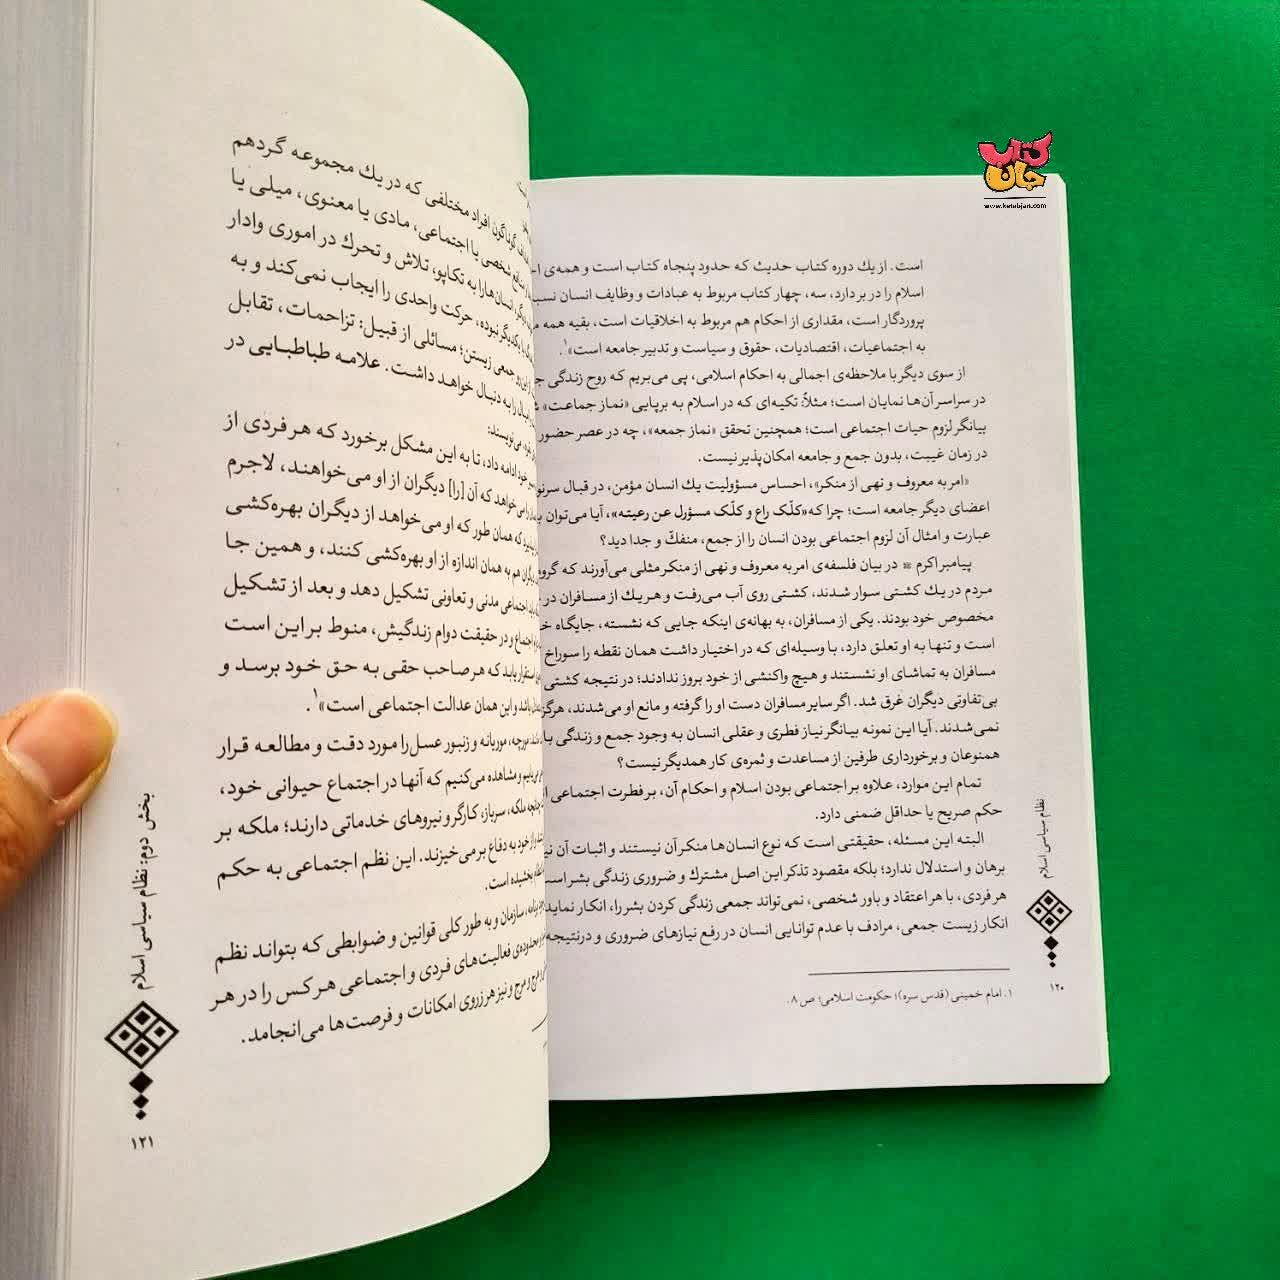 کتاب
جان
www.ketabjan.com
است. از یك دوره کتاب حدیث که حدود پنجاه کتاب است و همه‌ی
اسلام را در بر دارد، سه، چهار کتاب مربوط به عبادات و وظایف انسان
پروردگار است، مقداری از احکام هم مربوط به اخلاقیات است، بقیه همه
به اجتماعیات، اقتصادیات، حقوق و سیاست و تدبیر جامعه است»۱.
از سوی دیگر با ملاحظه‌ی اجمالی به احکام اسلامی، پی می‌بریم که روح زندگی
در سراسر آن‌ها نمایان است؛ مثلاً: تکیه‌ای که در اسلام به برپایی «نماز جماعت»
بیانگر لزوم حیات اجتماعی است؛ همچنین تحقق «نماز جمعه»، چه در عصر حضور
در زمان غیبت، بدون جمع و جامعه امکان‌پذیر نیست.
«امر به معروف و نهی از منکر»، احساس مسؤولیت یك انسان مؤمن، در قبال
اعضای دیگر جامعه است؛ چرا که «کلّک راع و کلّک مسؤرل عن رعیته»، آیا می‌توان
عبارت و امثال آن لزوم اجتماعی بودن انسان را از جمع، منفكّ و جدا دید؟
پیامبر اکرم در بیان فلسفه‌ی امر به معروف و نهی از منکر مثلی می‌آورند که
مردم در یك کشتی سوار شدند، کشتی روی آب می‌رفت و هر یك از مسافران در
مخصوص خود بودند. یکی از مسافران، به بهانه‌ی اینکه جایی که نشسته، جایگاه
است و تنها به او تعلق دارد، با وسیله‌ای که در اختیار داشت همان نقطه را سوراخ
مسافران به تماشای او نشستند و هیچ واکنشی از خود بروز ندادند؛ در نتیجه کشتی
بی‌تفاوتی دیگران غرق شد. اگر سایر مسافران دست او را گرفته و مانع او می‌شدند،
نمی‌شدند. آیا این نمونه بیانگر نیاز فطری و عقلی انسان به وجود جمع و زندگی
همنوعان و برخورداری طرفین از مساعدت و ثمره‌ی کار همدیگر نیست؟
تمام این موارد، علاوه بر اجتماعی بودن اسلام و احکام آن، بر فطرت اجتماعی
حکم صریح یا حداقل ضمنی دارد.
البته این مسئله، حقیقتی است که نوع انسان‌ها منکر آن نیستند و اثبات آن
برهان و استدلال ندارد؛ بلکه مقصود تذکر این اصل مشترك و ضروری زندگی بشر
هر فردی، با هر اعتقاد و باور شخصی، نمی‌تواند جمعی زندگی کردن بشر را، انکار نماید
انکار زیست جمعی، مرادف با عدم توانایی انسان در رفع نیازهای ضروری و درنتیجه
۱. امام خمینی (قدس سره)؛ حکومت اسلامی؛ ص ۸.
نظام سیاسی اسلام
۱۲۰
گوناگون افراد مختلفی که در یك مجموعه گردهم
شخصی یا اجتماعی، مادی یا معنوی، میلی یا
انسان‌ها را به تکاپو، تلاش و تحرك در اموری وادار
یکدیگر نبوده، حرکت واحدی را ایجاب نمی‌کند و به
جمعی زیستن؛ مسائلی از قبیل: تزاحمات، تقابل
را به دنبال خواهد داشت. علامه طباطبایی در
می‌نویسند:
خود ادامه داد، تا به این مشکل برخورد که هر فردی از
می‌خواهد که آن [را] دیگران از او می‌خواهند، لاجرم
که همان طور که او می‌خواهد از دیگران بهره‌کشی
دیگران هم به همان اندازه از او بهره‌کشی کنند، و همین جا
اجتماعی مدنی و تعاونی تشکیل دهد و بعد از تشکیل
اجتماع و در حقیقت دوام زندگیش، منوط بر این است
استقرار یابد که هر صاحب حقی به حق خود برسد و
باشد و این همان عدالت اجتماعی است»۱.
مورچه، موریانه و زنبور عسل را مورد دقت و مطالعه قرار
می‌یابیم و مشاهده می‌کنیم که آنها در اجتماع حیوانی خود،
ملکه، سرباز، کارگر و نیروهای خدماتی دارند؛ ملکه بر
از خود به دفاع برمی‌خیزند. این نظم اجتماعی به حکم
بخشیده است.
برنامه، سازمان و به طور کلی قوانین و ضوابطی که بتواند نظم
محدوده‌ی فعالیت‌های فردی و اجتماعی هر کس را در هر
هرج و مرج و نیز هرزروی امکانات و فرصت‌ها می‌انجامد.
بخش دوم: نظام سیاسی اسلام
۱۲۱